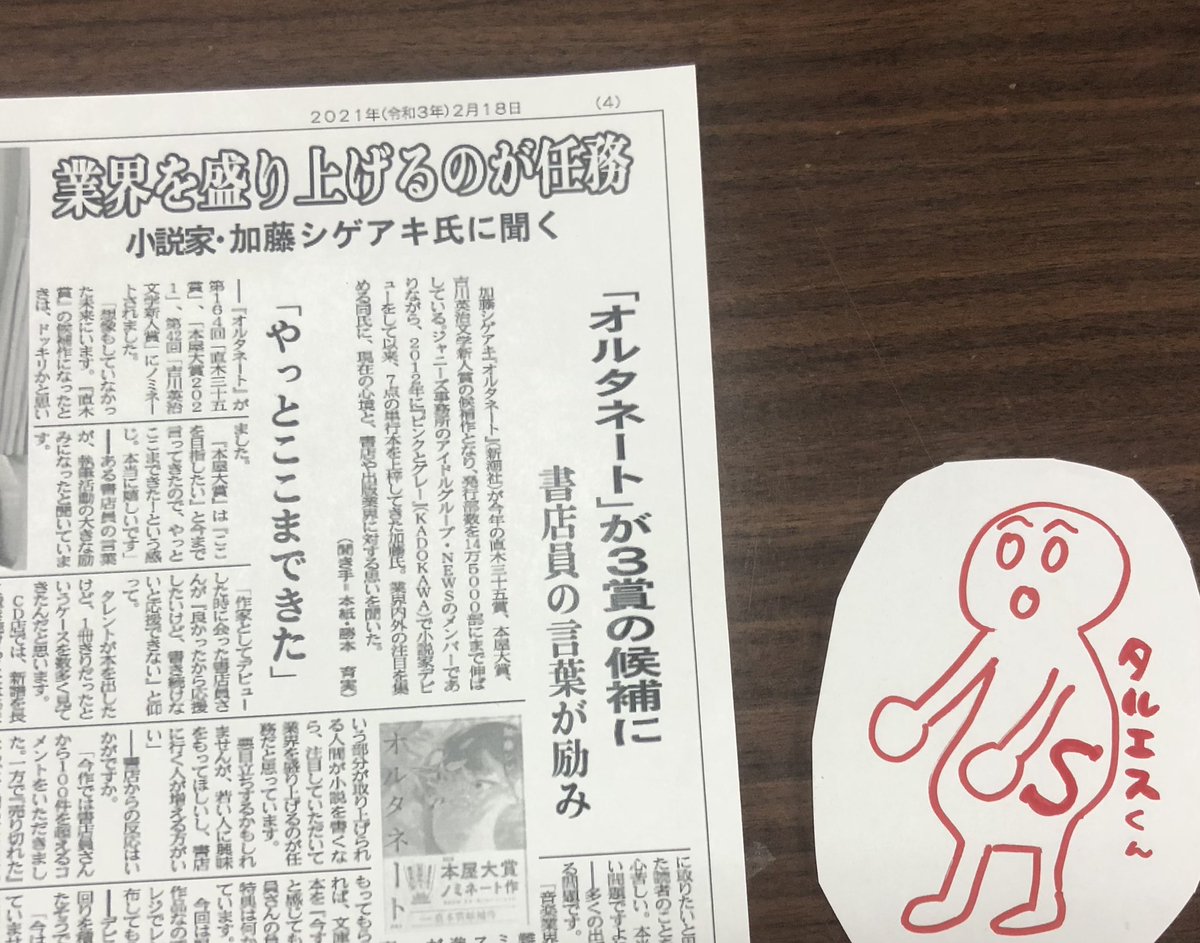 2021年(令和3年)2月18日
(4)
業界を盛り上げるのが任務
小説家・加藤シゲアキ氏に聞く
「オルタネート」が3賞の候補に
書店員の言葉が励み
加藤シゲアキ『オルタネート』(新潮社)が今年の直木三十五賞、本屋大賞、
吉川英治文学新人賞の候補作となり、発行部数を14万5000部にまで伸ば
している。ジャニーズ事務所のアイドルグループ・NEWSのメンバーであ
りながら、2012年に『ピンクとグレー』(KADOKAWA)で小説家デビ
ューをして以来、7点の単行本を上梓してきた加藤氏。業界内外の注目を集
める同氏に、現在の心境と、書店や出版業界に対する思いを聞いた。
(聞き手=本紙・勝本 育実)
「やっとここまできた」
――『オルタネート』が
第164回「直木三十五
賞」、「本屋大賞202
1」、第42回「吉川英治
文学新人賞」にノミネー
トされました。
「想像もしていなかっ
た未来にいます。『直木
賞』の候補作になったと
きは、ドッキリかと思い
ました。
『本屋大賞』は『ここ
を目指したい』と今まで
言ってきたので、やっと
ここまできたーという感
じ。本当に嬉しいです」
――ある書店員の言葉
が、執筆活動の大きな励
みになったと聞いていま
す。
「作家としてデビュー
した時に会った書店員さ
んが『良かったから応援
したいけど、書き続けな
いと応援できない』と仰
って。
タレントが本を出した
けど、1冊きりだったと
いうケースを数多く見て
きたんだと思います。
CD店では、新譜を長
いう部分が取り上げられ
る人間が小説を書くな
ら、注目していただいて
業界を盛り上げるのが任
務だと思っています。
悪目立ちするかもしれ
ませんが、若い人に興味
をもってほしいし、書店
に行く人が増える方がい
い」
――書店からの反応はい
かがですか。
「今作では書店員さん
から100件を超えるコ
メントをいただきまし
た。一方で『売り切れた』
オルタネート
本屋大賞
ノミネート作
もってもら
れば、文庫
本を『今す
と感じても
員さんの負
特典は何な
ています。
今回は
作品なので
レジでレ
布しても
――デビ
回りを積
たそうで
「今は
ていませ
に取りたいと思
た読者のことを
心苦しい。本当
い問題ですよ
――多くの出
る問題です。
「音楽業界
タルエスくん
S